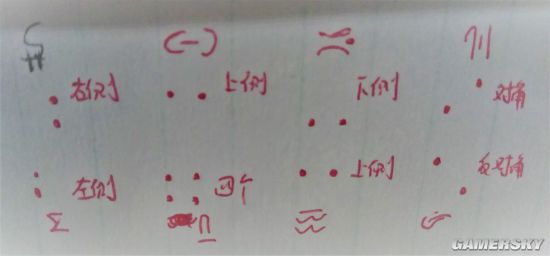 右侧
上侧
下侧
对角
左侧
四个
上侧
反对角
Σ
GAMERSKY